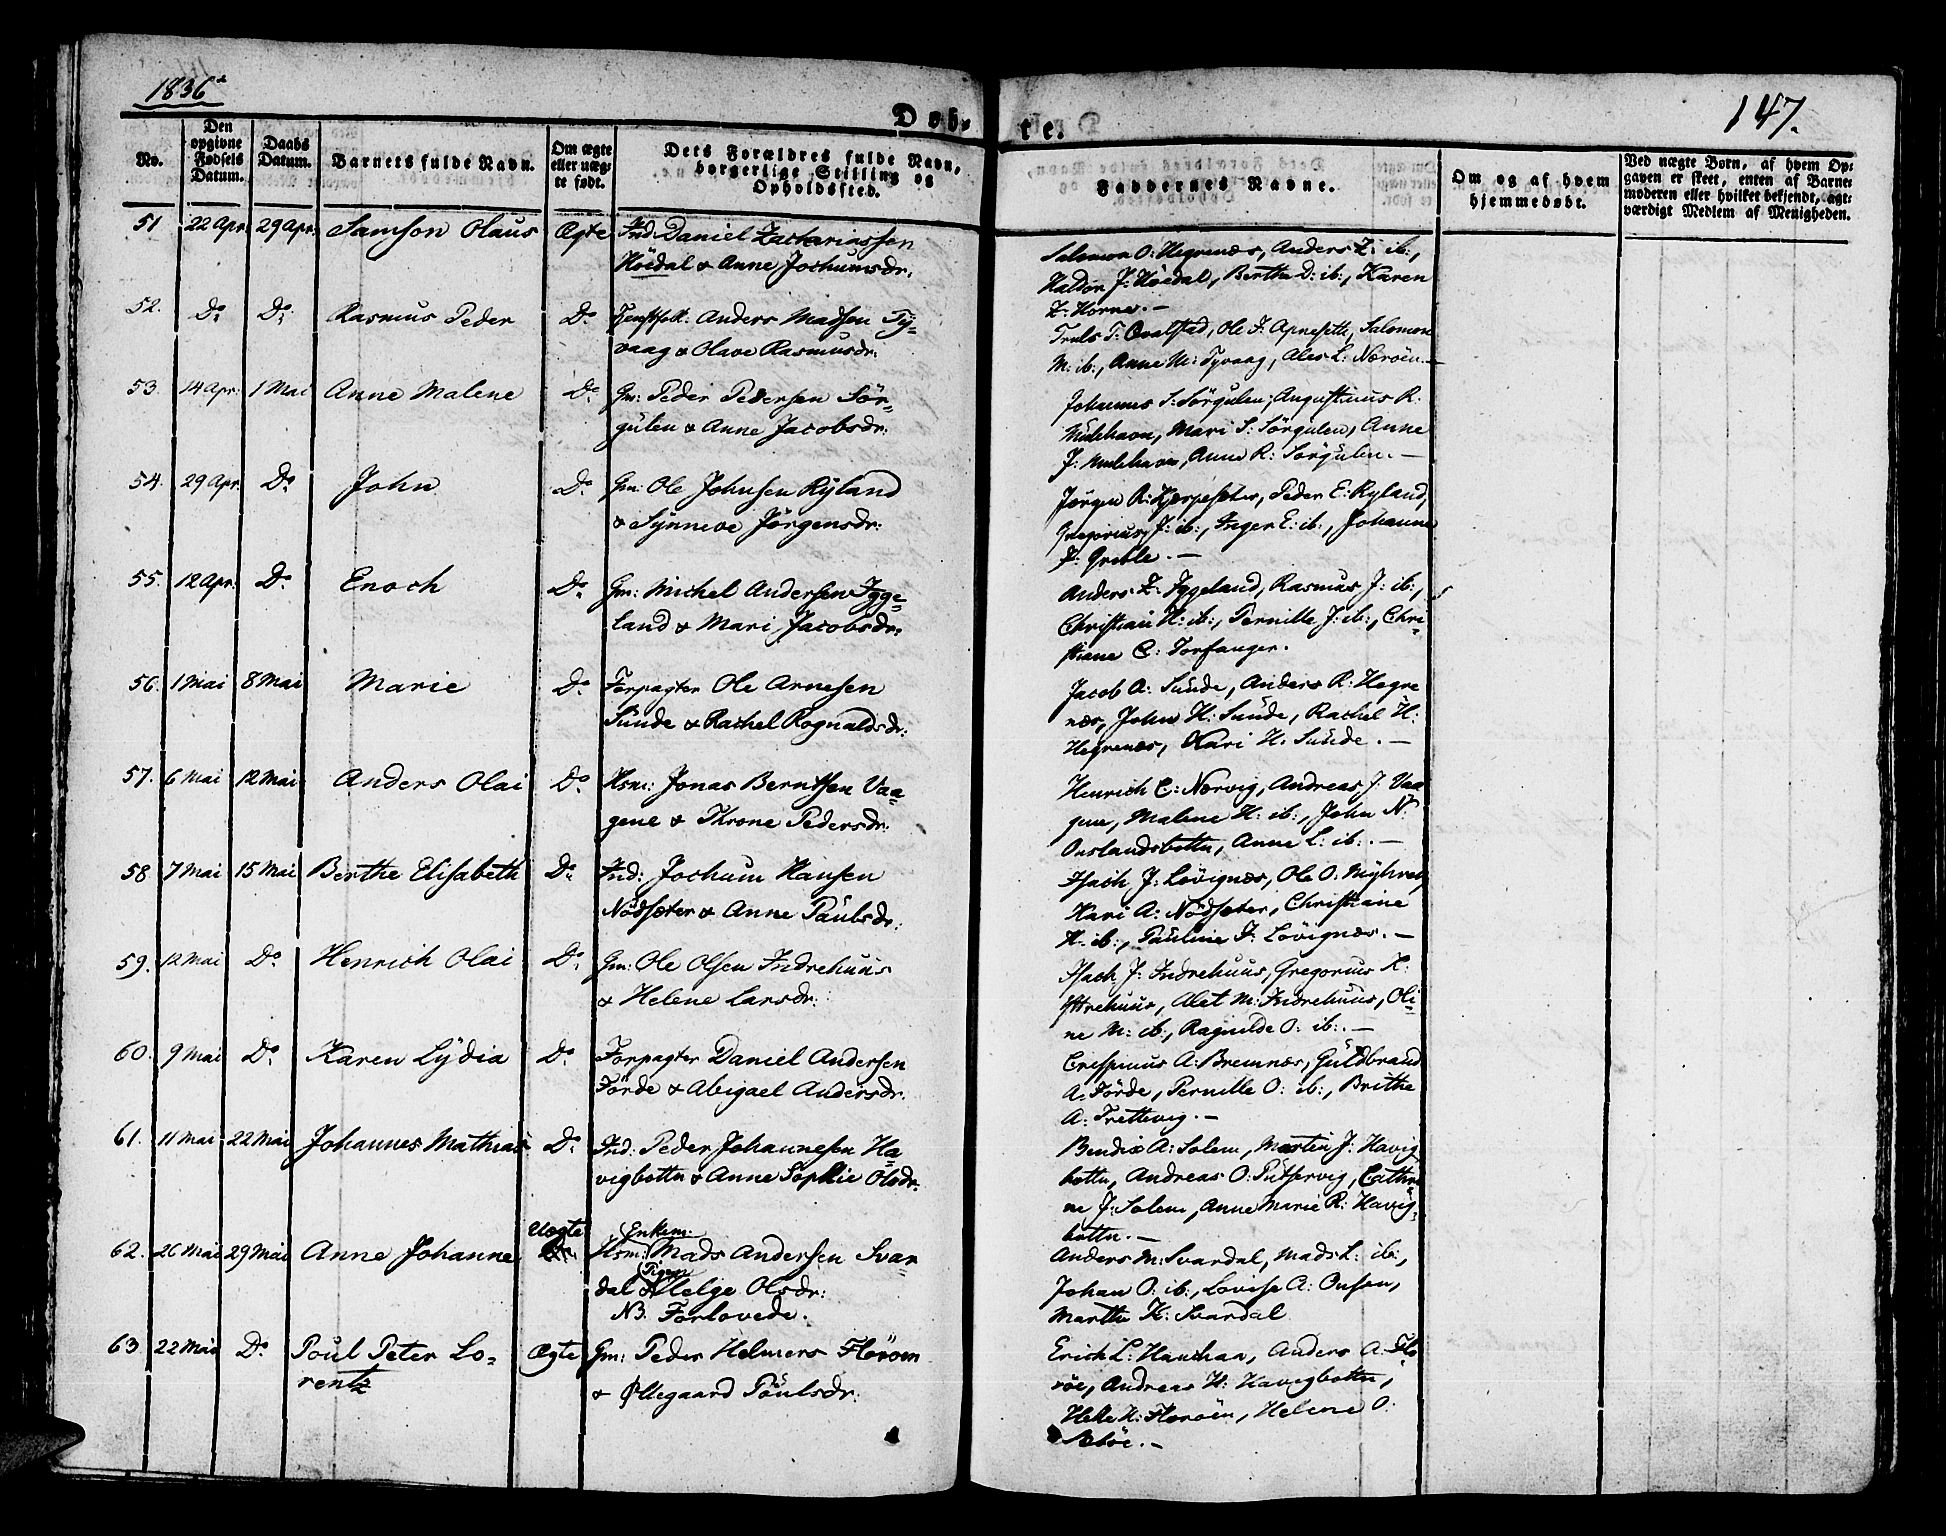 1836
147.
Døb-
te.
No.
Den opgivne Fødsels Datum.
Daabs Datum.
Barnets fulde Navn.
Om ægte eller uæg-te født.
Dets Forældres fulde Navn, borgerlige Stilling og Opholdssted.
Faddernes Navne.
Om og af hvem hjemmedøbt.
Ved uægte Børn, af hvem Op-
gaven er skeet, enten af Barne-
moderen eller hvilket bekjendt, agt-
værdigt Medlem af Menigheden.
51 22 Apr. 29 Apr. Samson Olaus Ægte Ind. Daniel Zachariassen
Höidal & Anne Jochumsdr:
Salomon O: Hegrenæs, Anders Z: ib:,
Haldor J: Höidal, Berthe D: ib:, Karen
Z: Horne. —
52. Do Do Rasmus Peder Do Anders Madsen Ty-
vaag & Olave Rasmusdr:
Truls T: Qvalstad, Ole J. Apneseth, Salomon
M: ib:, Anne M: Tyvaag, Ales L: Næröen. —
53. 14 Apr. 1 Mai Anne Malene Do Gm: Peder Pedersen Sör-
gulen & Anne Jacobsdr.
Johannes S: Sörgulen, Augustinus R.
Mulehavn, Mari S: Sörgulen, Anne
J: Mulehavn, Anne R: Sörgulen. —
54. 29 Apr. Do John Do Gm: Ole Johnsen Ryland
& Synneve Jörgensdr:
Jörgen R: Kjerpesæter, Peder E: Ryland,
Gregorius J: ib:, Inger E: ib:, Johanne
J: Grible. —
55. 12 Apr. Do Enoch Do Gm: Michel Andersen Igge-
land & Mari Jacobsdr:
Anders Z: Iggeland, Rasmus J: ib:,
Christian H: ib:, Pernille J: ib:, Chri-
stiane C: Torfanger.
56. 1 Mai 8 Mai Marie Do Forpagter Ole Arnesen
Sunde & Rachel Rognaldsdr:
Jacob A: Sunde, Anders R: Hegre
næs, John H: Sunde, Rachel H:
Hegrenæs, Kari H: Sunde. —
57. 6 Mai 12 Mai Anders Olai Do Hsm: Jonas Berntsen Vaa-
gene & Throne Pedersdr:
Henrich C: Norvig, Andreas J: Vaa
gene, Malene H: ib:, John N:
Ouslandsbotten, Anne L: ib:. —
58 7 Mai 15 Mai Berthe Elisabeth Do Ind: Jochum Hansen
Nödsæter & Anne Paulsdr:
Isach J: Lövignæs, Ole O.
Kari A: Nödsæter, Christiane
H. ib:, Pauline J: Lövignæs. —
59. 12 Mai Do Henrich Olai Do Gm: Ole Olsen Indrehuus
& Helene Larsdr:
Isach J: Indrehuus, Gregorius H:
Yttrehuus, Alet M: Indrehuus, Oli-
ne M: ib:, Ragnilde O: ib:. —
60. 9 Mai Do Karen Lydia Do Forpagter Daniel Andersen
Förde & Abigael Andersdr.
Crispinus A: Bremnæs, Guldbrand
A: Förde, Pernille O: ib:, Brithe
A: Trettevig. —
61. 11 Mai 22 Mai Johannes Mathias Do Ind: Peder Johannesen Ha-
vigbotten & Anne Sophie Olsdr.
Bendix A: Solem, Martin J: Havig
botten, Andreas O: , Cathri
ne J: Solem, Anne Marie R: Havig-
botten. —
62. 26 Mai 29 Mai Anne Johanne Uægte Enkem: Mads Andersen Svar-
dal & Pigen Helge Olsdr:
NB. Forlovede.
Anders M: Svardal, Mads L: ib:,
Johan O: ib:, Lovise A: Ousen,
Marthe H: Svardal
63. 22 Mai Do Poul Peter Lo-
rentz
Ægte Gm: Peder Helmers Floröen
& Øllegaard Poulsdr:
Erich L: , Anders A: Flo-
röe, Andreas H: Havigbotten,
H: Floröen, Helene O: